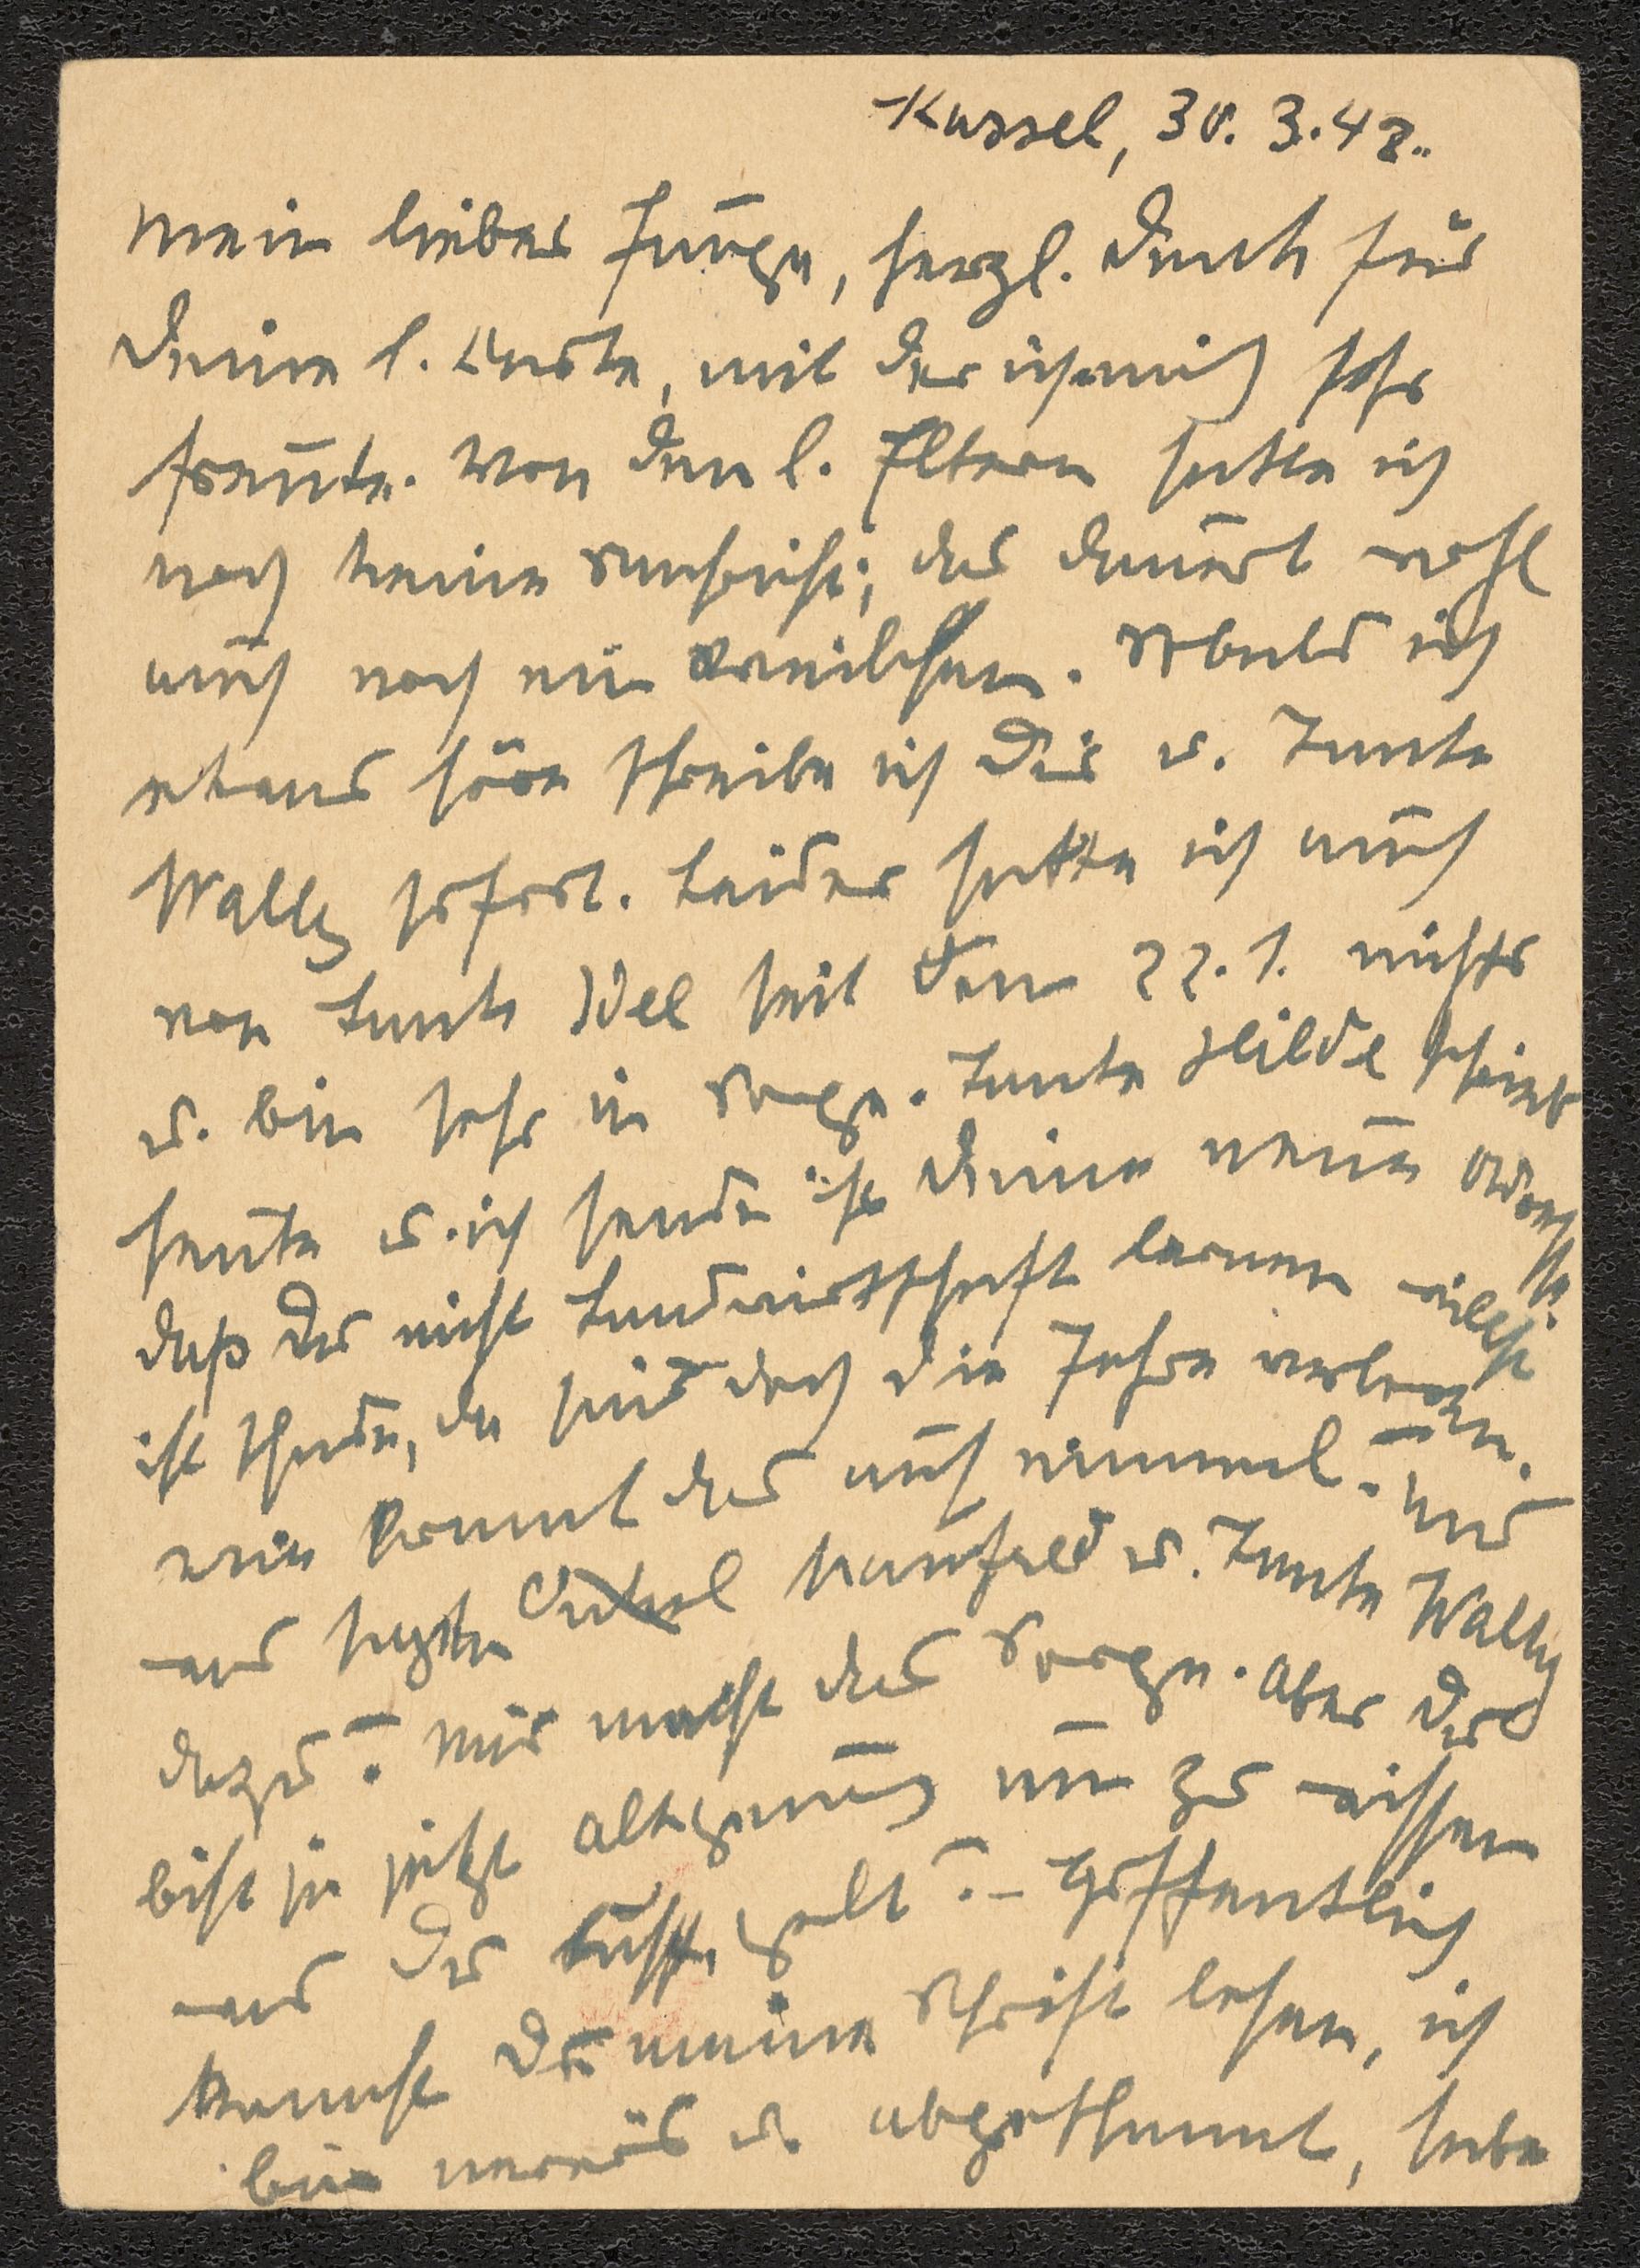 Kassel, 30. 3. 42.
Mein lieber Junge, herzl. Dank für
Deine l. Karte, mit der ich mich sehr
freute. Von den l. Eltern hatte ich
noch keine Nachricht; das dauert wohl
auch noch ein Weilchen. Sobald ich
etwas höre schreibe ich Dir u. Tante
Wally sofort. Leider hatte ich auch
von Tante Idel seit dem 22. 1. nichts
u. bin sehr in Sorge. Tante Hilde schrieb
heute u. ich sende ihr Deine neue Adresse.
daß Du nicht Landwirtschaft lernen willst
ist schade, da sind doch die Jahre verloren.
wie kommt das auf einmal? Und
was sagten Onkel Manfred u. Tante Wally
dazu? Mir macht das Sorge. Aber Du
bist ja jetzt alt genug um zu wissen
was Du tust, gelt? – Hoffentlich
kannst Du meine Schrift lesen, ich
bin nervös u. abgespannt, habe